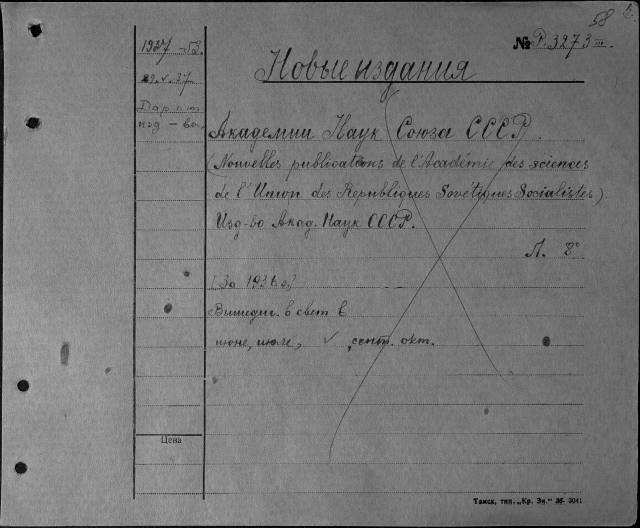 58
№ P. 3273 III.
1937 - 53.
29.V.37
Дар от
изд - ва
Новые издания
Академии Наук Союза СССР.
(Nouvelles publications de l'Académie des sciences
de l'Union des Republiques Soviétiques Socialistes).
Изд-во Акад. Наук СССР.
Л. 8°
(За 1936 г.)
Вышедш. в свет в
июне, июле, ✓, сент. окт.
Цена
Томск, тип. „Кр. Зн." 36- 3041